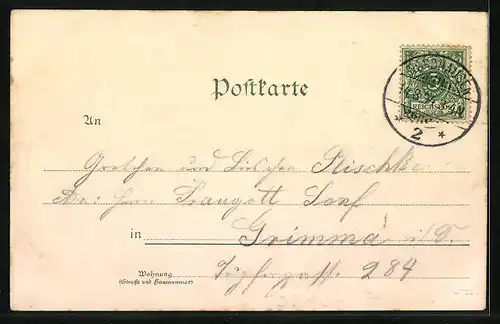 Postkarte
An
Gretchen und Lieschen Stischke
Adr: Herrn Traugott Senf
in Grimma i/S.
284
Wohnung
(Straße und Hausnummer)
REICHSPOST
2 *